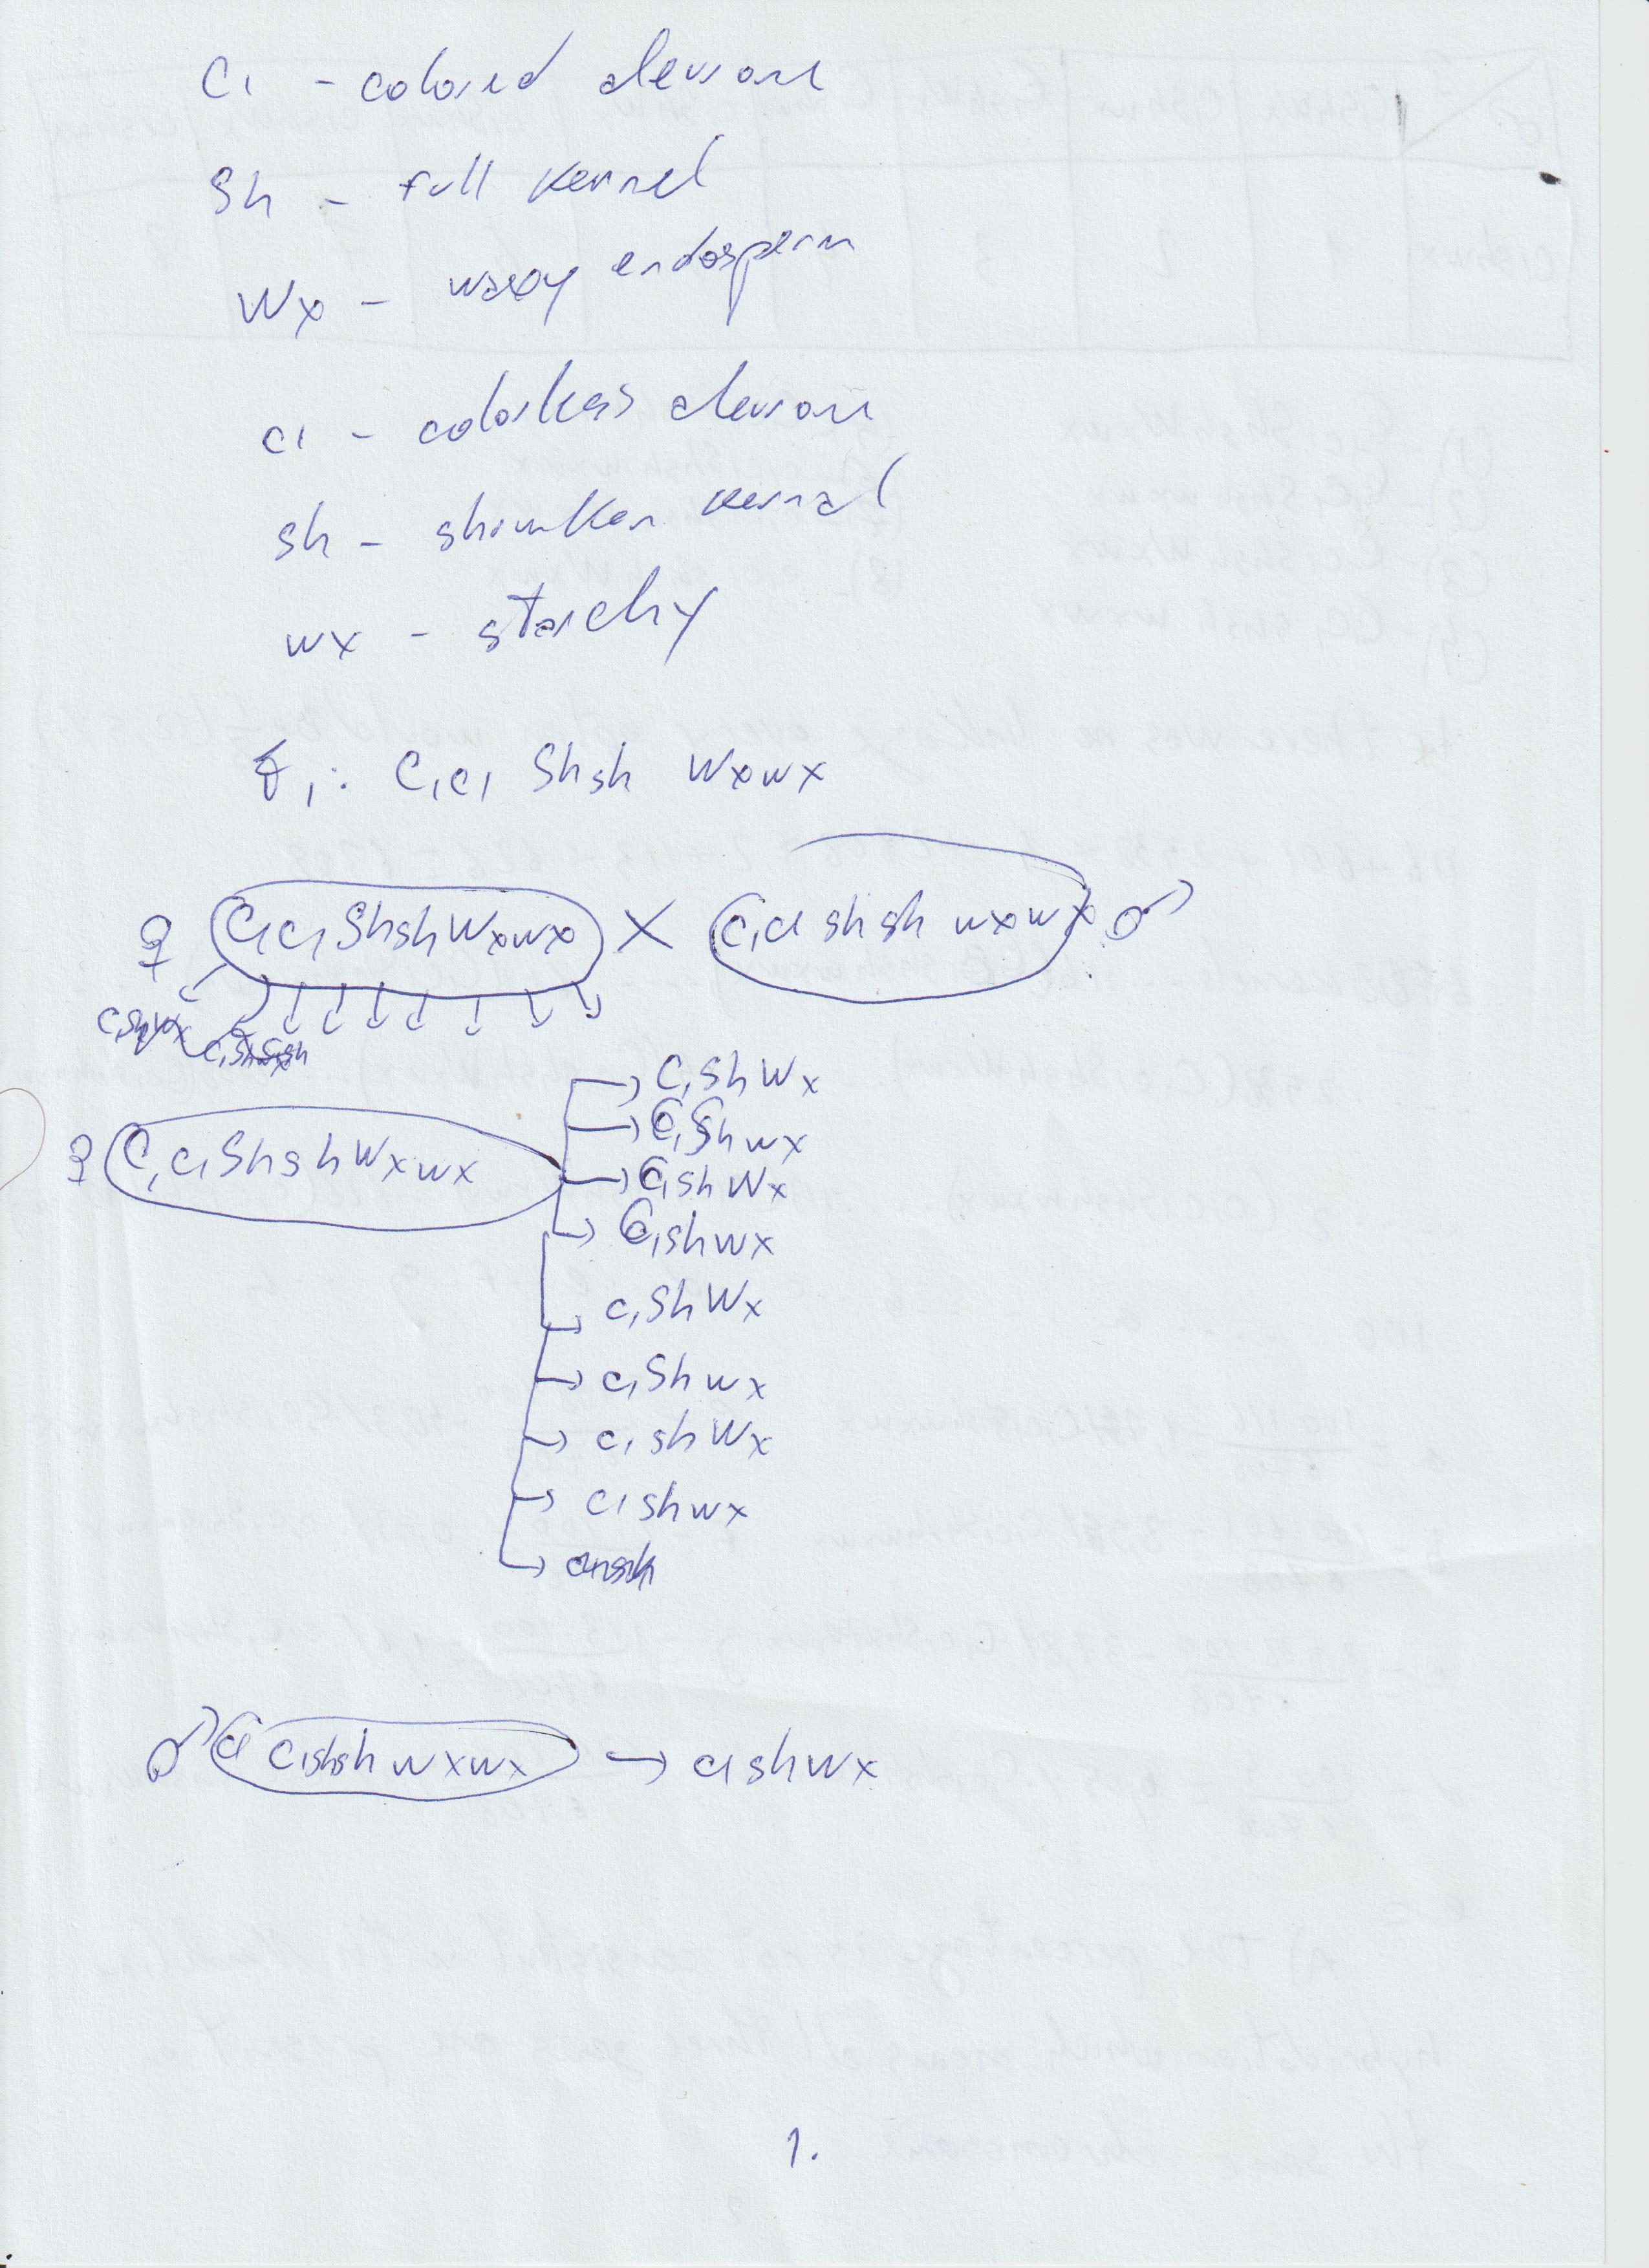 C1 - colored aleurone
Sh - full kernel
Wx - waxy endosperm
c1 - colorless aleurone
sh - shrunken kernal
wx - starchy
F1: C1c1 Shsh Wxwx
♀ C1c1ShshWxwx X c1c1 shsh wxwx ♂
♀ C1c1ShshWxwx
→ C1ShWx
→ C1Shwx
→ C1shWx
→ C1shwx
→ c1ShWx
→ c1Shwx
→ c1shWx
→ c1shwx
♂ c1c1shshwxwx → c1shwx
1.